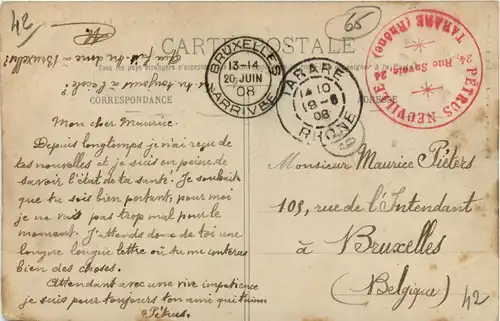 42
65
CARTE POSTALE
Tous les pays étrangers n'acceptent
CORRESPONDANCE
ADRESSE
BRUXELLES
13-14
20 JUIN
08
ARRIVÉE
TARARE
4 10
19-6
08
RHÔNE
PÉTRUS NEUVILLE
24, Rue Savoie, 24
TARARE (Rhône)
Que fait-tu donc à Bruxelles?
es-tu toujours à l'école?
Mon cher Maurice.
Depuis longtemps je n'ai reçu de
tes nouvelles et je suis en peine de
savoir l'état de ta santé. Je souhaite
que tu sois bien portant, pour moi
je ne vais pas trop mal pour le
moment. J'attends donc de toi une
longue longue lettre où tu me conteras
bien des choses.
Attendant avec une vive impatience
je suis pour toujours ton ami qui t'aime
Pétrus.
Monsieur Maurice Piéters
108, rue de l'Intendant
à Bruxelles
(Belgique)
42